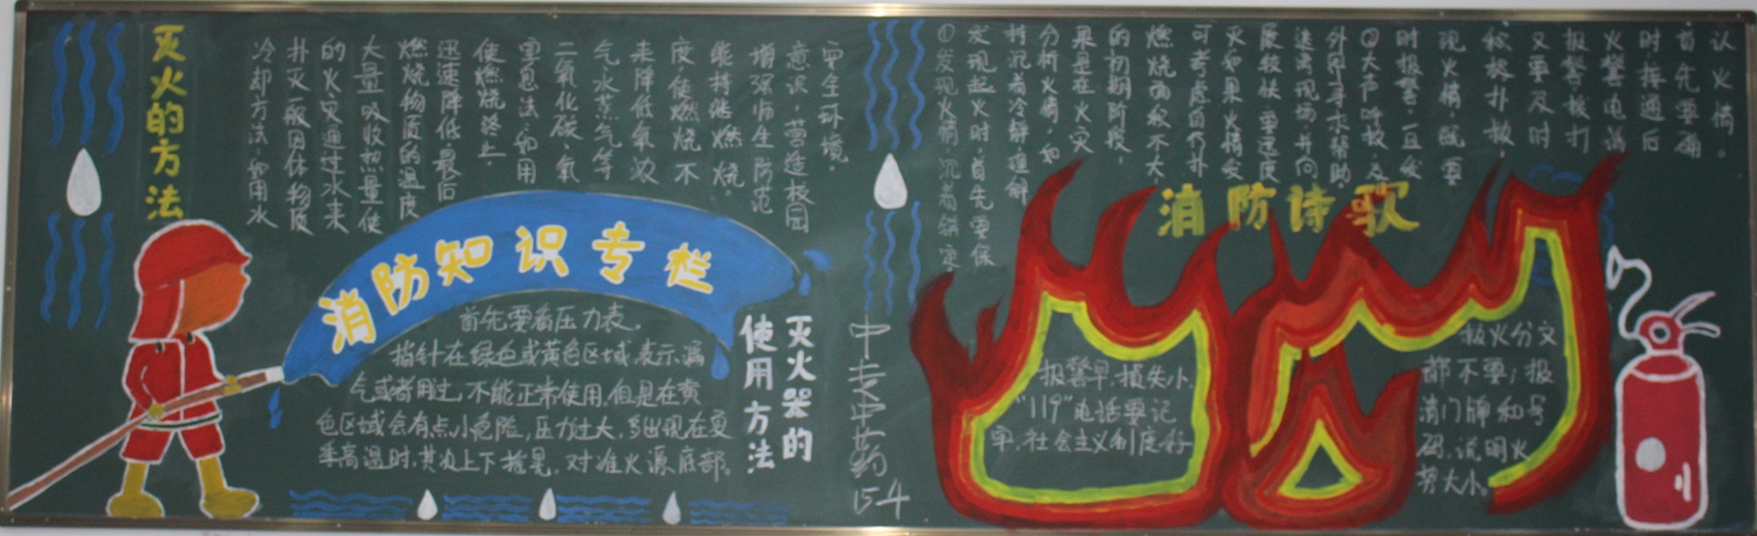 灭火的方法
冷却方法:如用水
扑灭一般固体物质
的火灾通过水来
大量吸收热量使
燃烧物质的温度
迅速降低最后
使燃烧终止
窒息法:如用
二氧化碳、氮
气水蒸气等
来降低氧浓
度使燃烧不
能持继燃烧
增强师生防范
意识,营造校园
安全环境。
消防知识专栏
首先要看压力表。
指针在绿色或黄色区域,表示漏
气或者用过,不能正常使用,但是在黄
色区域会有点小危险,压力过大,多出现在夏
季高温时,其次上下摇晃,对准火源底部。
灭火器的
使用方法
中专中药
15-4
①发现火情沉着镇定
发现起火时,首先要保
持沉着冷静,理解
分析火情,如
果是在火灾
的初期阶段,
燃烧面积不大
可考虑自行扑
灭如果火情发
展较快,要速度
逃离现场并向
外界寻求帮助
②大声呼救,及
时报警一旦发
现火情,既要
积极扑救
又要及时
报警拨打
火警电话
时接通后
首先要确
认火情。
消防诗歌
报警早,损失小,
"119"电话要记
牢,社会主义制度好
救火分文
都不要;报
清门牌和号
码,说明火
势大小。